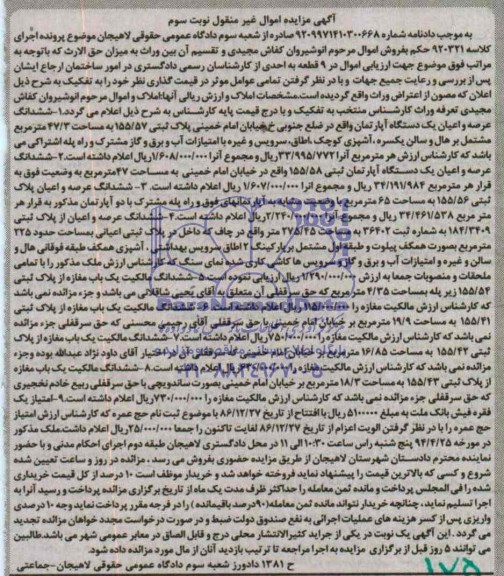 آگهی مزایده اموال غیر منقول نوبت سوم
به موجب دادنامه شماره ۹۲۰۹۹۷۱۴۱۰۳۰۰۶۶۸ صادره از شعبه سوم دادگاه عمومی حقوقی لاهیجان موضوع پرونده اجرای
کلاسه ۹۲۰۳۲۱ حکم بفروش اموال مرحوم انوشیروان کفاش مجیدی و تقسیم آن بین وراث به میزان حق الارث که باتوجه به
مراتب فوق موضوع جهت ارزیابی اموال در ۹ قطعه به احدی از کارشناسان رسمی دادگستری در امور ساختمان ارجاع ایشان
پس از بررسی و رعایت جمیع جهات و با در نظر گرفتن تمامی عوامل موثر در قیمت گذاری نظر خود را به تفکیک به شرح ذیل
اعلان که مصون از اعتراض وراث واقع گردیده است.مشخصات املاک و ارزش ریالی آنها:املاک و اموال مرحوم انوشیروان کفاش
مجیدی تعرفه وراث کارشناس منتخب به تفکیک و با درج قیمت پایه کارشناس به شرح ذیل اعلام می گردد.۱-ششدانگ
عرصه و اعیان یک دستگاه آپارتمان واقع در ضلع جنوبی خ خیابان امام خمینی پلاک ثبتی ۱۵۵/۵۷ به مساحت ۴۷/۳ مترمربع
مشتمل بر هال و سالن یکسره ،آشپزی کوچک ،اطاق، سرویس، و غیره با امتیازات آب و برق و گاز مشترک و راه پله اشتراکی می
باشد که کارشناس ارزش هر مترمربع آنرا ۳۳/۹۹۵/۷۷۲ ریال و مجموع آنرا ۱/۶۰۸/۰۰۰/۰۰۰ ریال اعلام داشته است.۲-ششدانگ
عرصه و اعیان یک دستگاه آپارتمان ثبتی ۱۵۵/۵۸ واقع در خیابان امام خمینی به مساحت ۴۷ مترمربع به وضعیت فوق به
قرار هر مترمربع ۳۴/۱۹۱/۹۸۴ ریال و مجموع آنرا ۱/۶۰۷/۰۰۰/۰۰۰ ریال اعلام داشته است. ۳- ششدانگ عرصه و اعیان پلاک
ثبتی ۱۵۵/۵۶ به مساحت ۶۵ مترمربع فوق و راه پله مشترک با دو آپارتمان مذکور به قرار هر
متر مربع ۳۴/۴۶۱/۵۳۸ ریال و مجموع آنرا ۲/۲۴۰/۰۰۰ ریال اعلام داشته است.۴-ششدانگ عرصه و اعیان از پلاک ثبتی
۱۸۲/۳۴۰۹ به شماره ثبت ۳۶۴۰۲ به مساحت ۲۷۵/۴۵ متر واقع در چاف که داخل در پلاک ثبتی اعیانی بمساحت حدود ۲۲۵
مترمربع بصورت همکف پیلوت و طبقه اول مشتمل بر پارکینگ ۲ اطاق سرویس بهداشتی، آشپزی همکف طبقه فوقانی هال و
سالن و غیره و امتیازات آب و برق و گاز سرویس ها کاشی کاری شده نمای سنگ که کارشناس ارزش ملک مذکور را با تمامی
ملحقات و منصوبات جمعا به ارزش ۱/۲۹۰/۰۰۰/۰۰۰ ریال ارزیابی نموده است ۵-ششدانگ مالکیت یک باب مغازه از پلاک ثبتی
۱۵۵/۵۴ زیر پله بمساحت ۴/۳۵ مترمربع که حق سرقفلی آن متعلق به آقای یحیی شاقلانی می باشد و جزء مزایده نمی باشد
که کارشناس ارزش مالکیت مغازه را ریال اعلام داشته است ۶-ششدانگ مالکیت یک باب مغازه از پلاک ثبتی
۱۵۵/۴۱ به مساحت ۱۹/۹ مترمربع بر خیابان امام خمینی با حق سرقفلی آقای محسنی که حق سرقفلی جزء مزایده
نمی باشد کارشناس ارزش مالکیت مغازه را ۷۵۰/۰۰۰/۰۰۰ ریال اعلام داشته است.۷-ششدانگ مالکیت یک باب مغازه از پلاک
ثبتی ۱۵۵/۴۲ به مساحت ۱۶/۸۵ مترمربع خیابان امام خمینی که سرقفلی آن در اختیار آقای داود نژاد عبدالله بوده وجزء
مزایده نمی باشد که کارشناس ارزش مالکیت مغازه را ریال اعلام داشته است.۸-ششدانگ مالکیت یک باب مغازه
از پلاک ثبتی ۱۵۵/۴۳ به مساحت ۱۸/۳ مترمربع بر خیابان امام خمینی بصورت ساندویچی با حق سرقفلی ربیع خادم نخجیری
که حق سرقفلی جزء مزایده نمی باشد که کارشناس ارزش مالکیت مغازه را ۷۳۰/۰۰۰/۰۰۰ ریال اعلام داشته است.۹-امتیاز یک
فقره فیش بانک ملت به مبلغ ۵۱۰۰۰۰۰ ریال با افتتاح از تاریخ ۸۶/۱۲/۲۷ با موضوع ثبت نام حج عمره که کارشناس ارزش امتیاز
حج عمره را با در نظر گرفتن الویت اعزام از تاریخ ۸۶/۱۲/۲۷ لغایت تاکنون را جمعا ۲۵/۰۰۰/۰۰۰ ریال اعلام داشت.ملک مذکور
در مورخه ۹۴/۴/۲۵ پنج شنبه راس ساعت ۱۰:۳۰ الی ۱۱ در محل دادگستری لاهیجان طبقه دوم اجرای احکام مدنی و با حضور
نماینده محترم دادستان شهرستان لاهیجان از طریق مزایده حضوری بفروش می رسد . مزایده در روز و ساعت تعیین شده
شروع و کسی که بالاترین قیمت را پیشنهاد نماید فروخته خواهد شد و خریدار موظف است ۱۰ درصد از کل قیمت خریداری
شده را فی المجلس پرداخت و مانده ثمن معامله را حداکثر ظرف مدت یک ماه از تاریخ برگزاری مزایده پرداخت و رسید آنرا به
اجرا تسلیم نماید، چنانچه خریدار نتواند مانده ثمن معامله(۹۰درصد باقیمانده) را در فرجه مقرر پرداخت نماید وجه ۱۰ درصدی
واریزی پس از کسر هزینه های عملیات اجرائی به نفع صندوق دولت ضبط و در صورت درخواست مجدد خواهان مزایده تجدید
می گردد . این آگهی یک نوبت در یکی از جراید کثیرالانتشار محلی درج و قابل الصاق در معابر عمومی شهر می باشد.طالبین
می توانند ۵ روز قبل از برگزاری مزایده به اجرا مراجعه تا ترتیب بازدید آنان از مال مورد مزایده داده شود.
ح ۱۳۸۱ دادورز شعبه سوم دادگاه عمومی حقوقی لاهیجان-جماعتی
۱۷۵